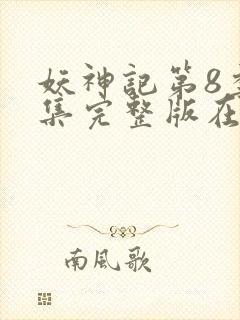 妖神記第8
集完整版在
南風歌